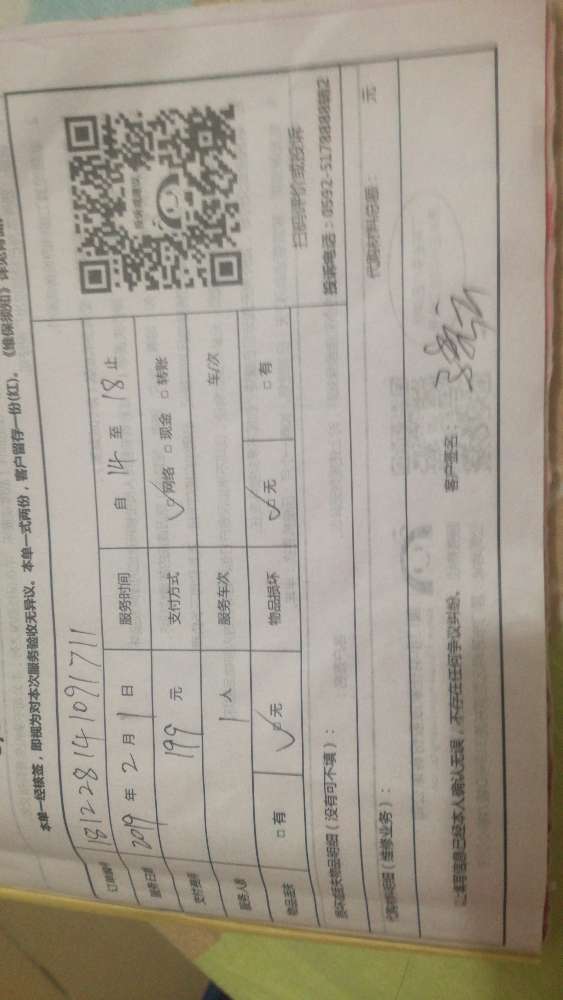 本单一经核签，即视为对本次服务验收无异议。本单一式两份，客户留存一份(红)。《维保须知》详见背面。
订单编号 181228141091711
服务日期 2019 年 2 月 1 日 服务时间 自 14 至 18 止
支付费用 199 元 支付方式 ☑网络 □现金 □转账
服务人数 1 人 服务车次 车/次
物品丢失 □有 ☑无 物品损坏 ☑无 □有
扫码评价或投诉
投诉电话：0592-5178888
损坏丢失物品明细（没有可不填）：
代购材料明细（维修业务）： 代购材料总额： 元
以上填写信息已经本人确认无误，不存在任何争议纠纷。 客户签名：